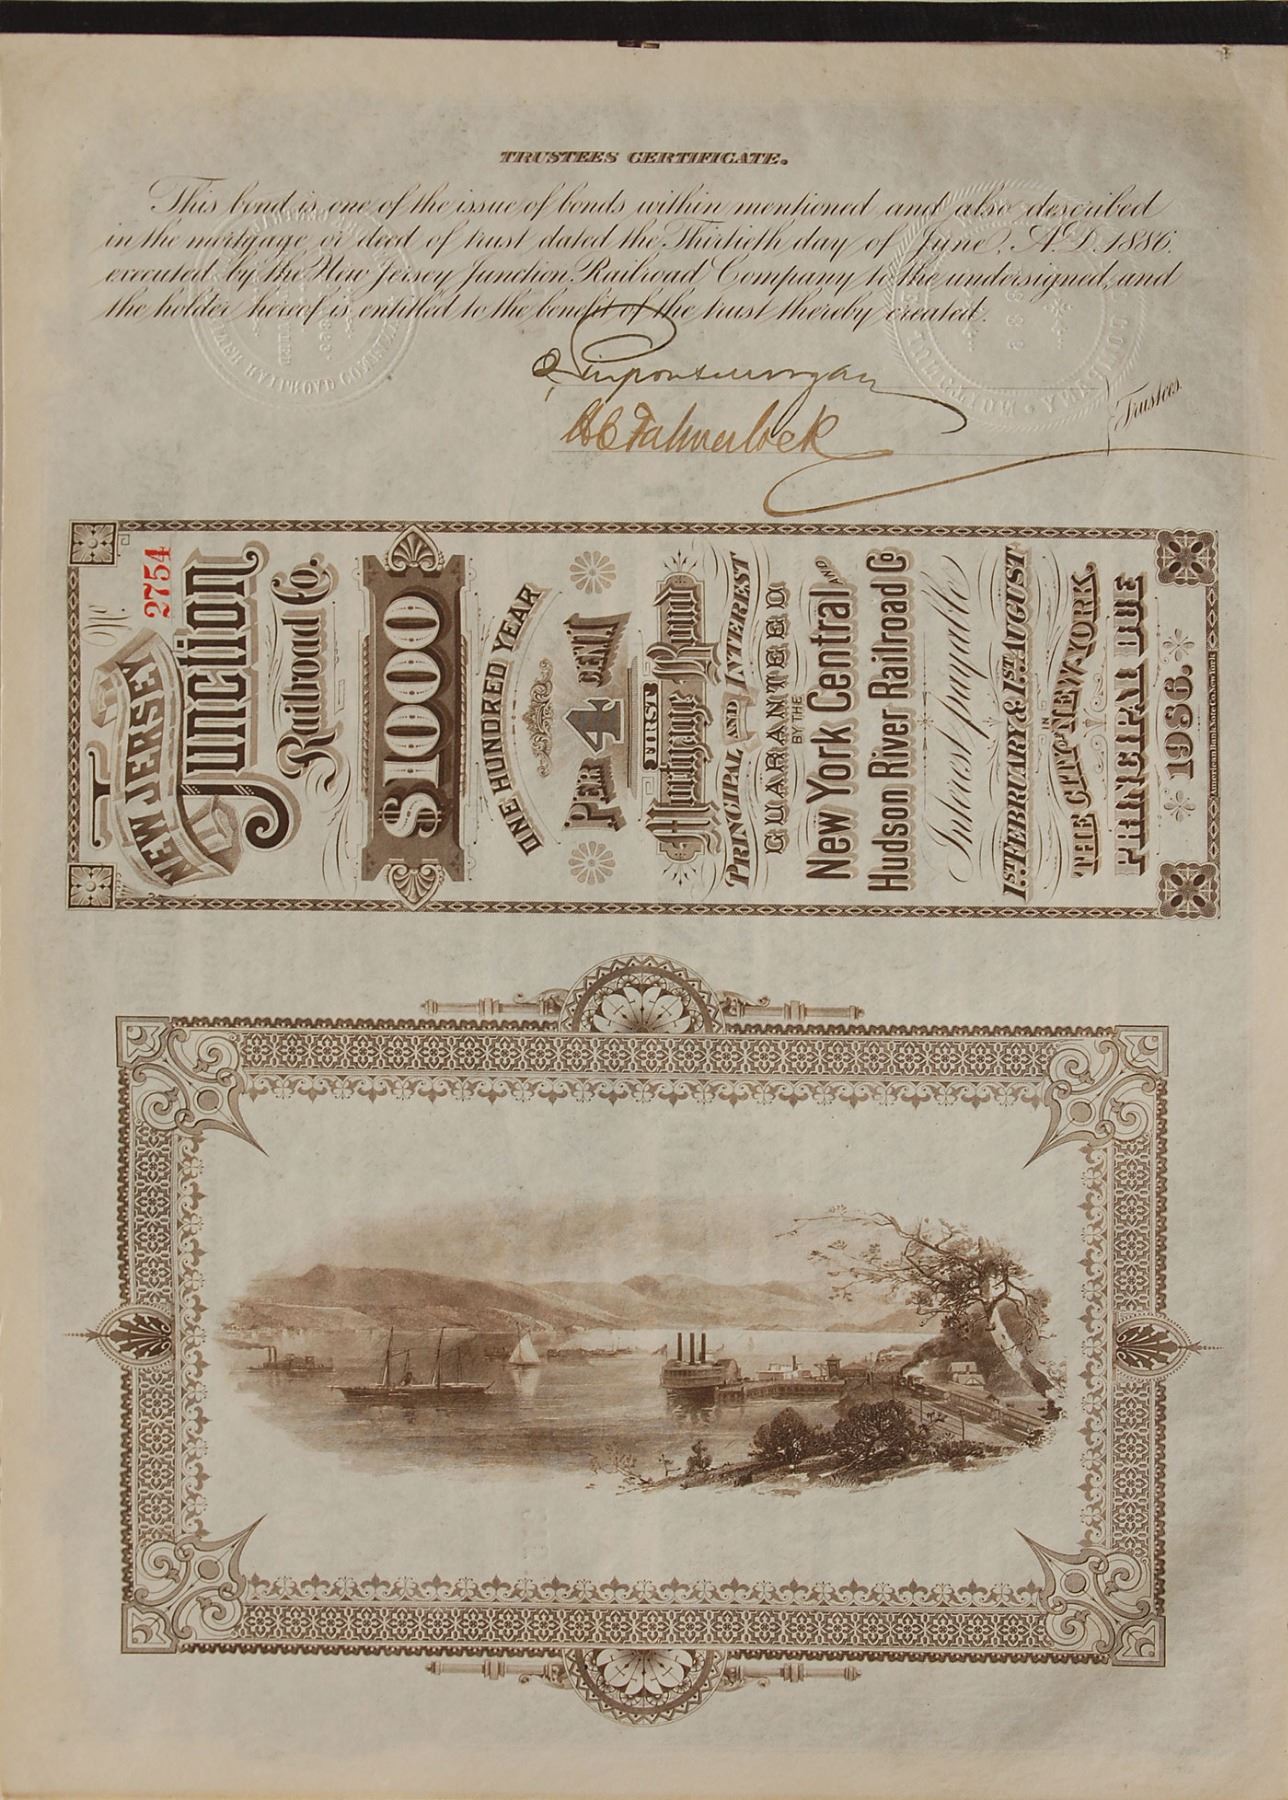 TRUSTEES CERTIFICATE.
This bond is one of the issue of bonds within mentioned and also described
in the mortgage or deed of trust dated the Thirtieth day of June, A.D. 1886.
executed by the New Jersey Junction Railroad Company to the undersigned, and
the holder hereof is entitled to the benefit of the trust thereby created.
J. Pierpont Morgan
Trustees
No. 2754
NEW JERSEY
Junction
Railroad Co.
$1000
ONE HUNDRED YEAR
PER 4 CENT
FIRST
Mortgage Bond
PRINCIPAL AND INTEREST
GUARANTEED
BY THE
New York Central AND
Hudson River Railroad Co
Interest payable
1ST FEBRUARY & 1ST AUGUST
IN
THE CITY OF NEW YORK
PRINCIPAL DUE
1986.
American Bank Note Co. New York